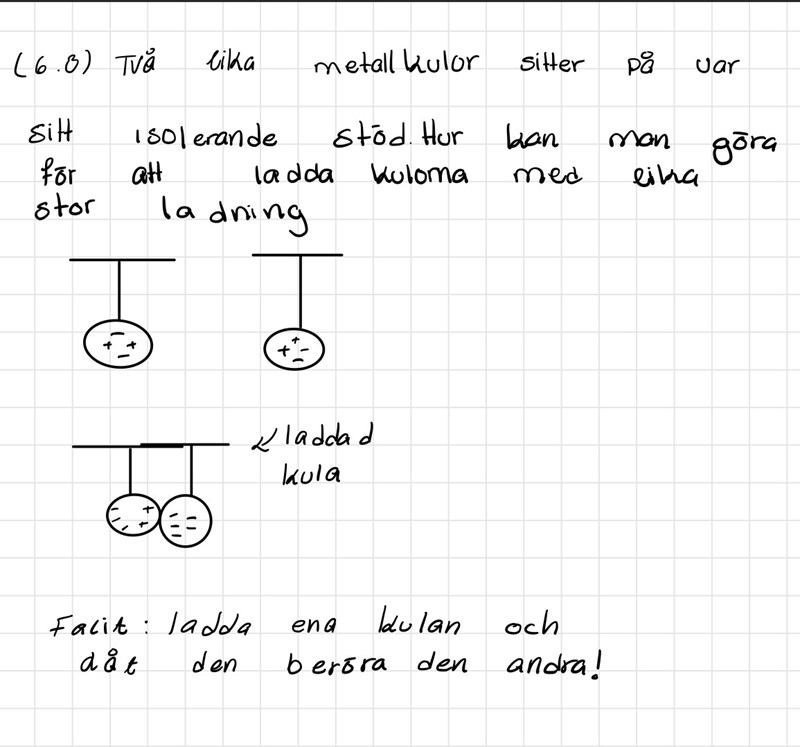 (6.0) Två lika metallkulor sitter på var
sitt isolerande stöd. Hur kan man göra
för att ladda kulorna med lika
stor ladning
- + + -
+ + - -
laddad
kula
- + - - +
- - - - -
Facit: ladda ena kulan och
dåt den beröra den andra!